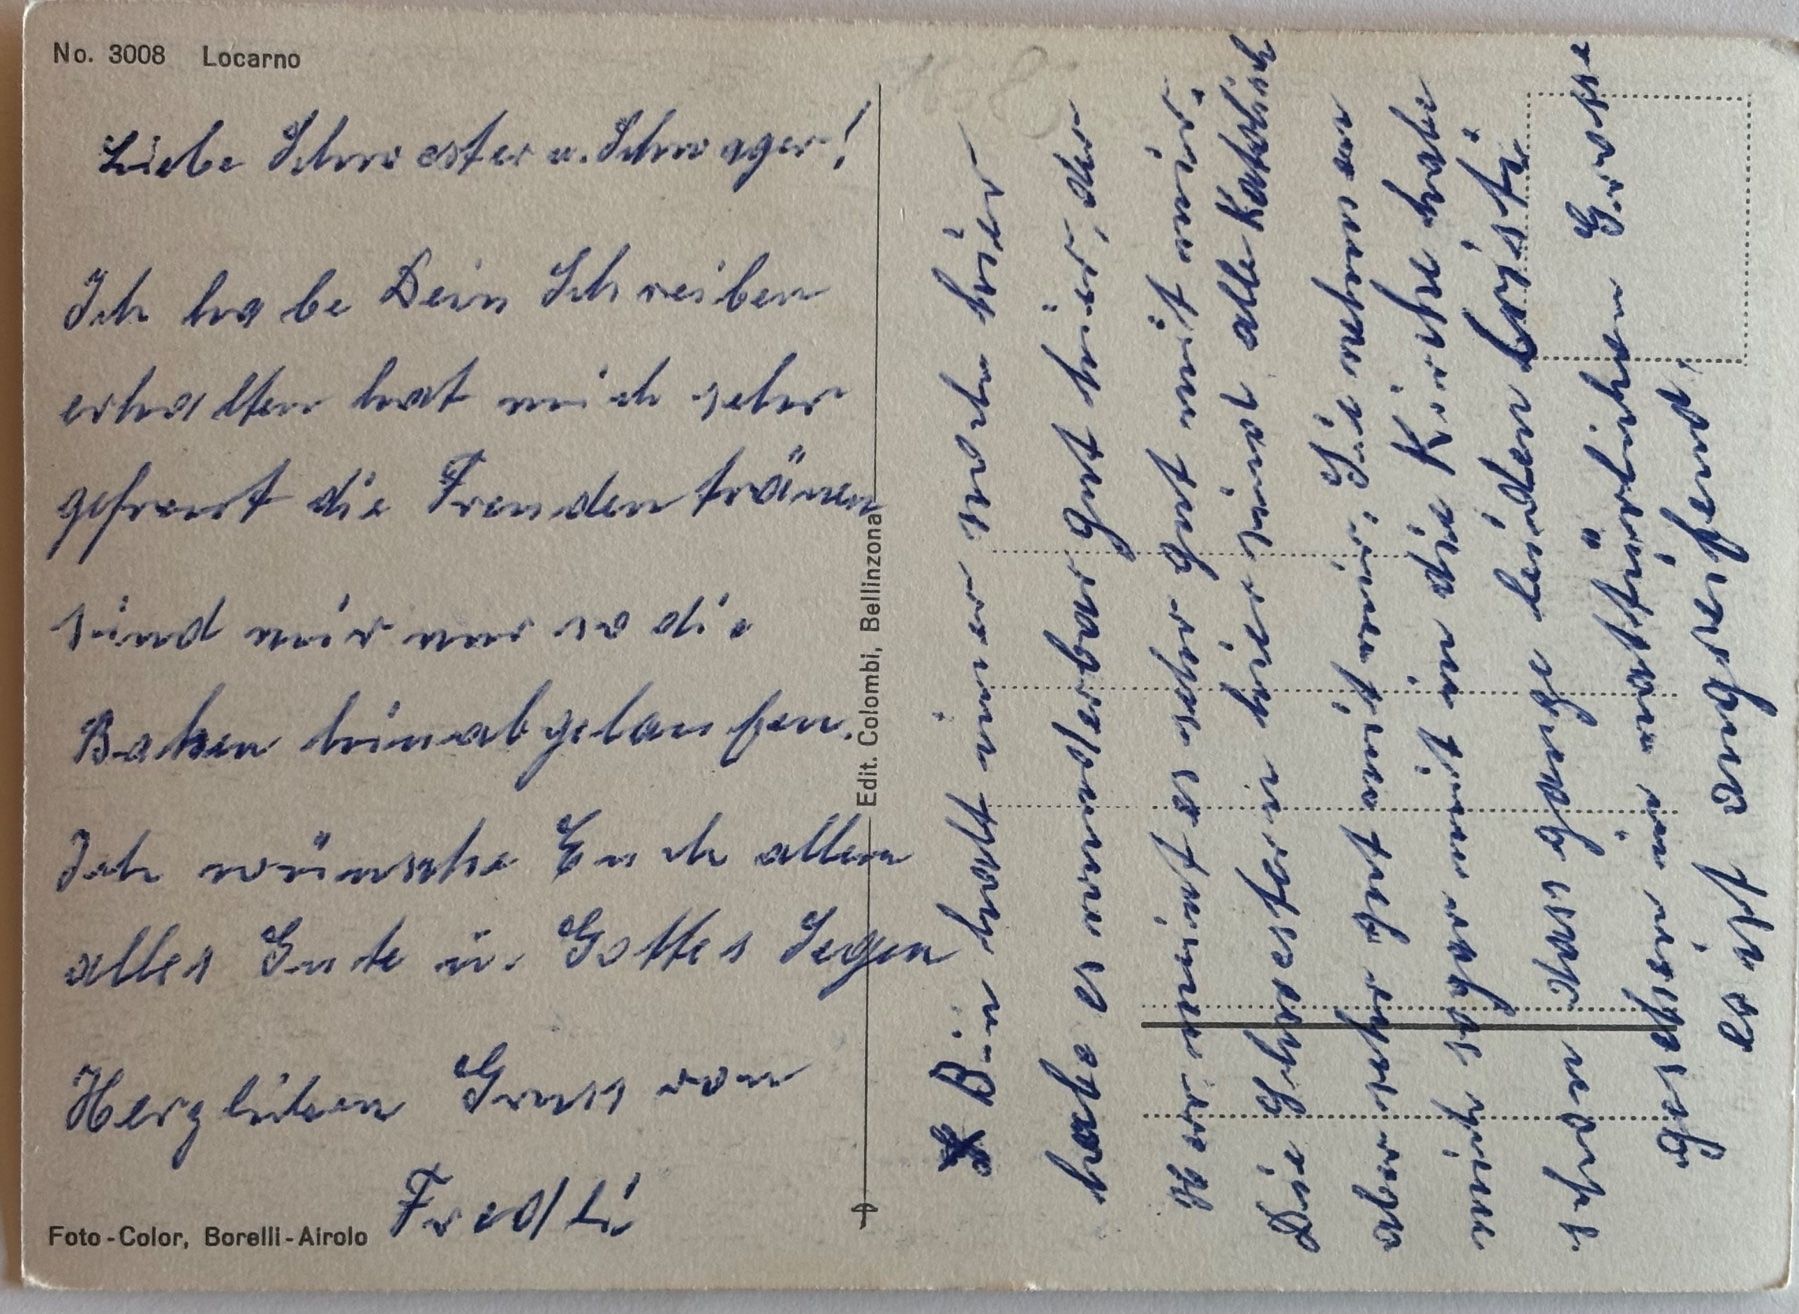 No. 3008 Locarno
Liebe Schwester u. Schwager!
Ich habe Dein Schreiben
erhalten hat mich sehr
gefreut die Freuden tränen
sind mir nur so die
Baken hinabgelaufen.
Ich wünsche Euch allen
alles Gute ü. Gottes Segen
Herzlichen Gruss von
Fredli
Foto-Color, Borelli-Airolo
Edit. Colombi, Bellinzona
Bin halt imer noch hier
habe es wunderbar gut hier, der
Herr meint es sehr gut mit mir.
Die Schwestern hier sind alle Katolisch
aber sehr gut mit mir. Sie nehmen
mich sogar mit in die Kirche habe
schon das ganze leiden Cristi
gesehen in nattürlichen Grösse
es ist Angreifend.